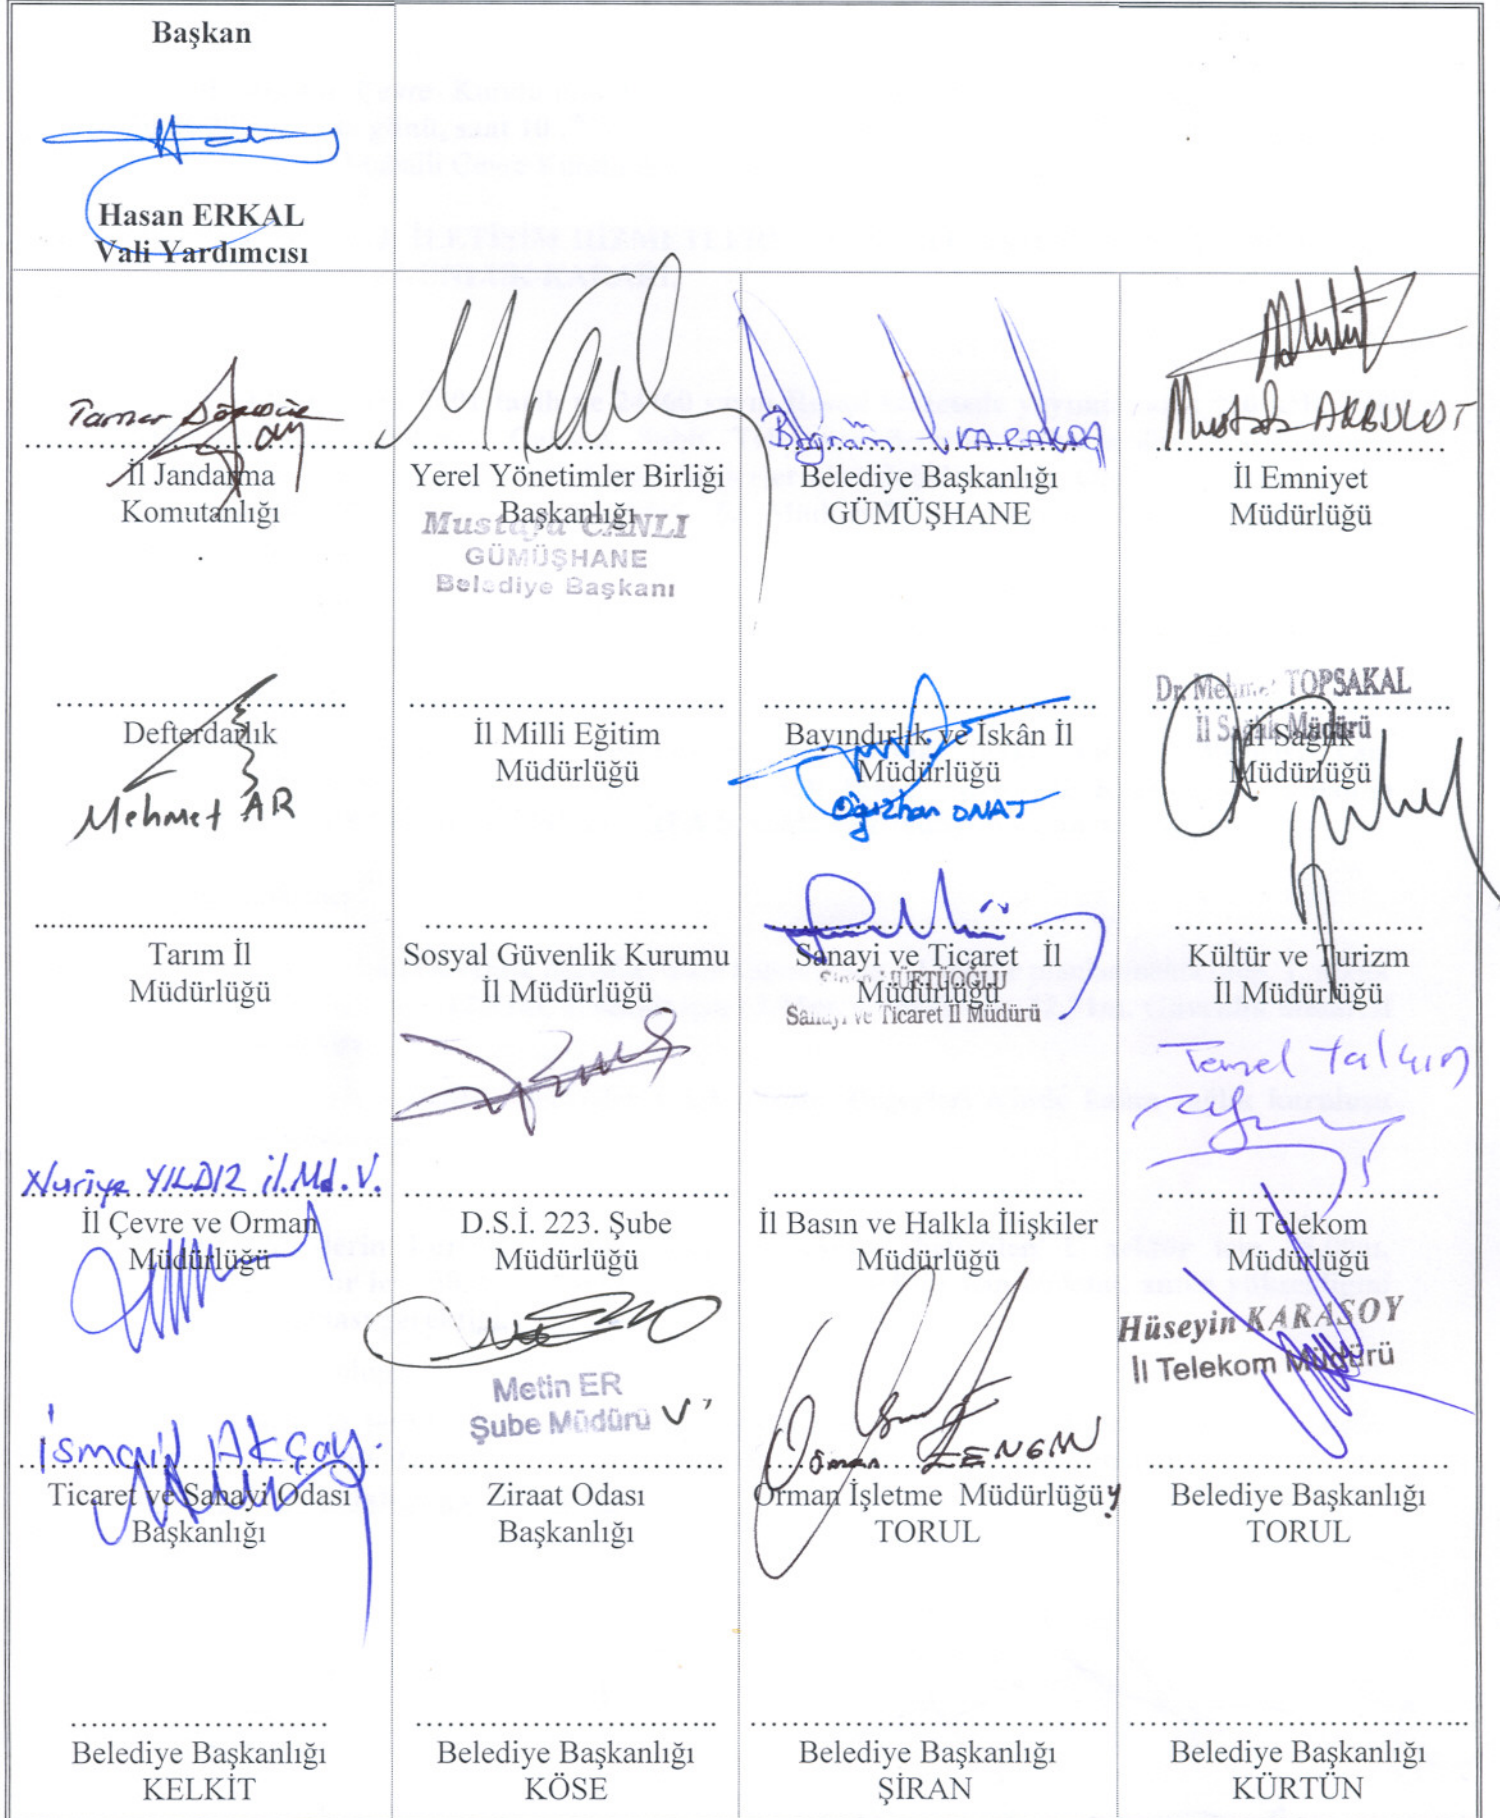 Başkan
Hasan ERKAL
Vali Yardımcısı
İl Jandarma
Komutanlığı
Yerel Yönetimler Birliği
Başkanlığı
Mustafa CANLI
GÜMÜŞHANE
Belediye Başkanı
Bayram
Belediye Başkanlığı
GÜMÜŞHANE
Mustafa AKBULUT
İl Emniyet
Müdürlüğü
Defterdarlık
Mehmet AR
İl Milli Eğitim
Müdürlüğü
Bayındırlık ve İskân İl
Müdürlüğü
Oğuzhan ONAT
Dr. Mehmet TOPSAKAL
İl Sağlık Müdürü
İl Sağlık
Müdürlüğü
Tarım İl
Müdürlüğü
Sosyal Güvenlik Kurumu
İl Müdürlüğü
Sanayi ve Ticaret İl
Müdürlüğü
MÜFTÜOĞLU
Sanayi ve Ticaret İl Müdürü
Kültür ve Turizm
İl Müdürlüğü
Temel Yalçın
Nuriye YILDIZ il.Md.V.
İl Çevre ve Orman
Müdürlüğü
D.S.İ. 223. Şube
Müdürlüğü
Metin ER
Şube Müdürü V.
İl Basın ve Halkla İlişkiler
Müdürlüğü
İl Telekom
Müdürlüğü
Hüseyin KARASOY
İl Telekom Müdürü
İsmail Akçay.
Ticaret ve Sanayi Odası
Başkanlığı
Ziraat Odası
Başkanlığı
Osman ZENGİN
Orman İşletme Müdürlüğü
TORUL
Belediye Başkanlığı
TORUL
Belediye Başkanlığı
KELKİT
Belediye Başkanlığı
KÖSE
Belediye Başkanlığı
ŞİRAN
Belediye Başkanlığı
KÜRTÜN